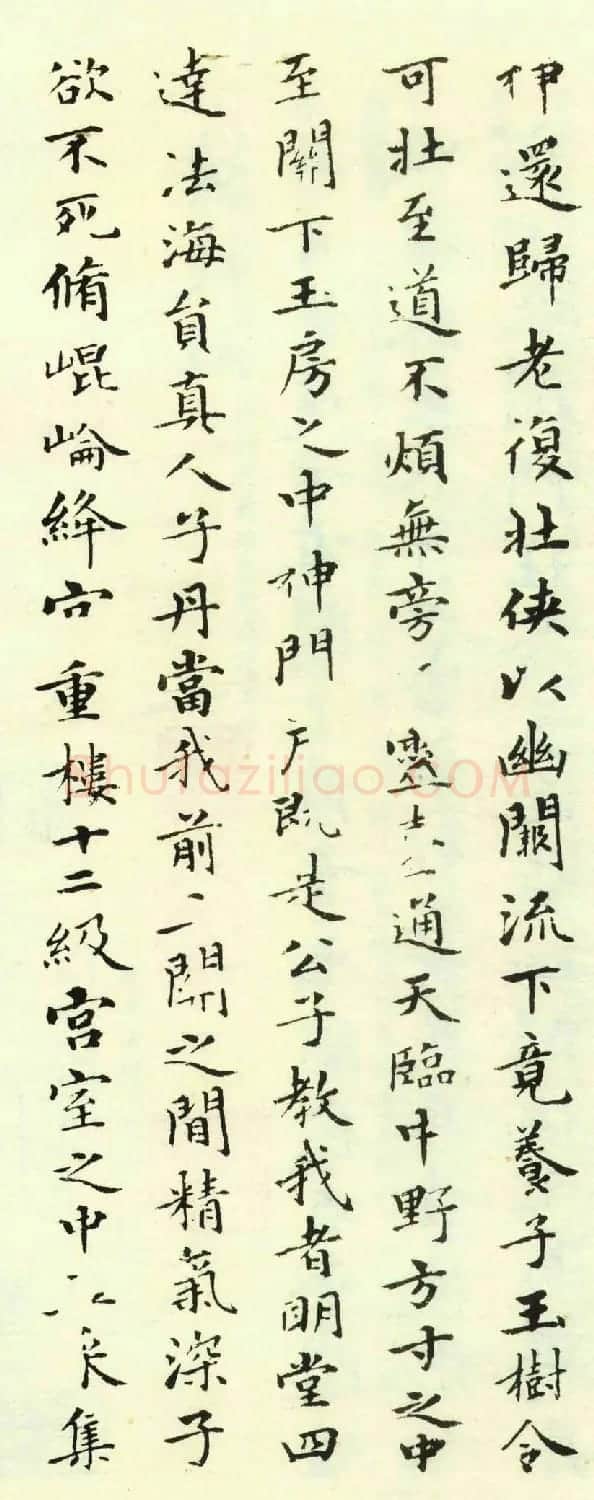 神還歸老復壯俠以幽闕流下竟養子玉樹令
可壯至道不煩無旁靈臺通天臨中野方寸之中
至關下玉房之中神門戶既是公子教我者明堂四
達法海員真人子丹當我前三關之間精氣深子
欲不死脩崐崘絳宮重樓十二級宮室之中五采集
Shufaziliao.COM